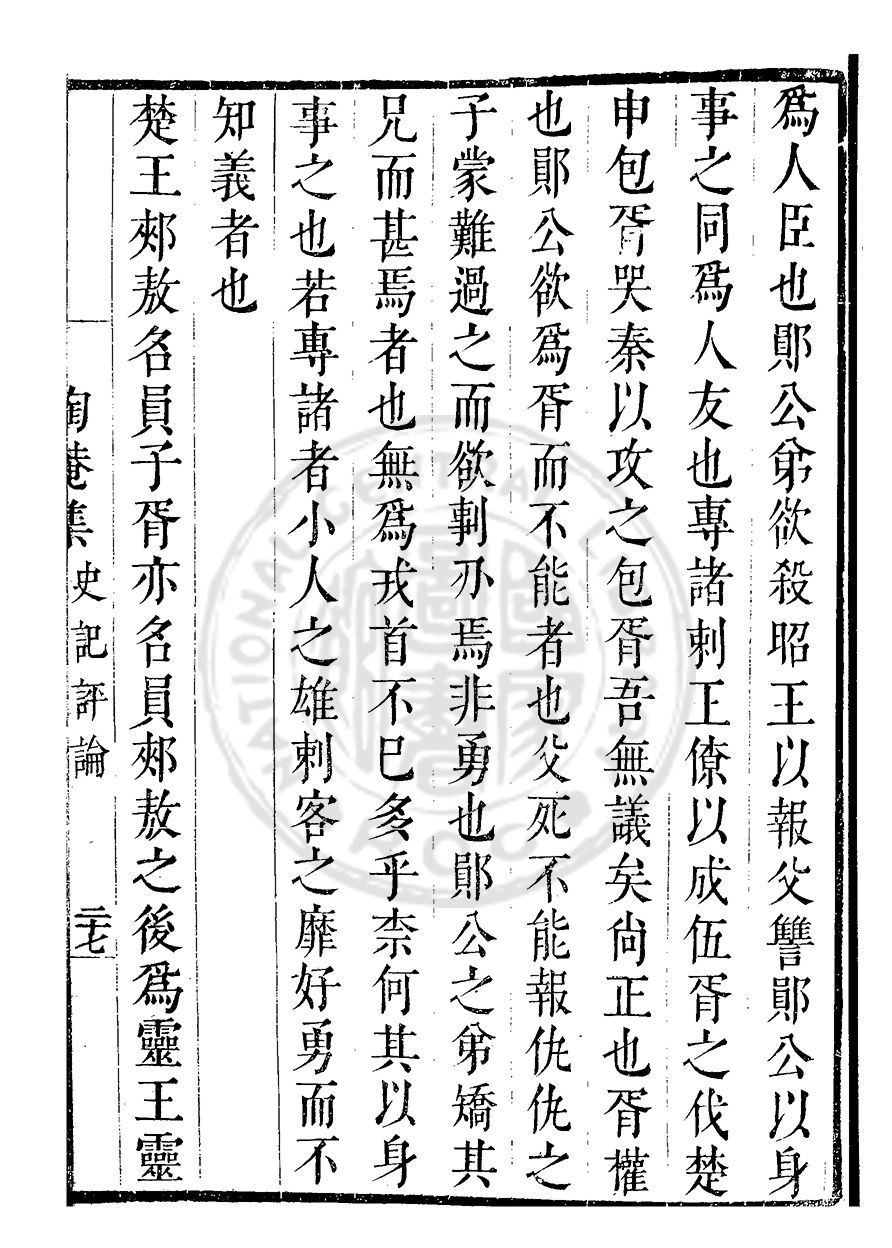 爲人臣也鄖公弟欲殺昭王以報父讐鄖公以身
事之同爲人友也專諸刺王僚以成伍胥之伐楚
申包胥哭秦以攻之包胥吾無議矣尙正也胥權
也鄖公欲爲胥而不能者也父死不能報仇仇之
子蒙難過之而欲剚刅焉非勇也鄖公之弟矯其
兄而甚焉者也無爲戎首不巳多乎柰何其以身
事之也若專諸者小人之雄刺客之靡好勇而不
知義者也
楚王郟敖名員子胥亦名員郟敖之後爲靈王靈
陶菴集 史記評論 二十七
NATIONAL CENTRAL LIBRARY